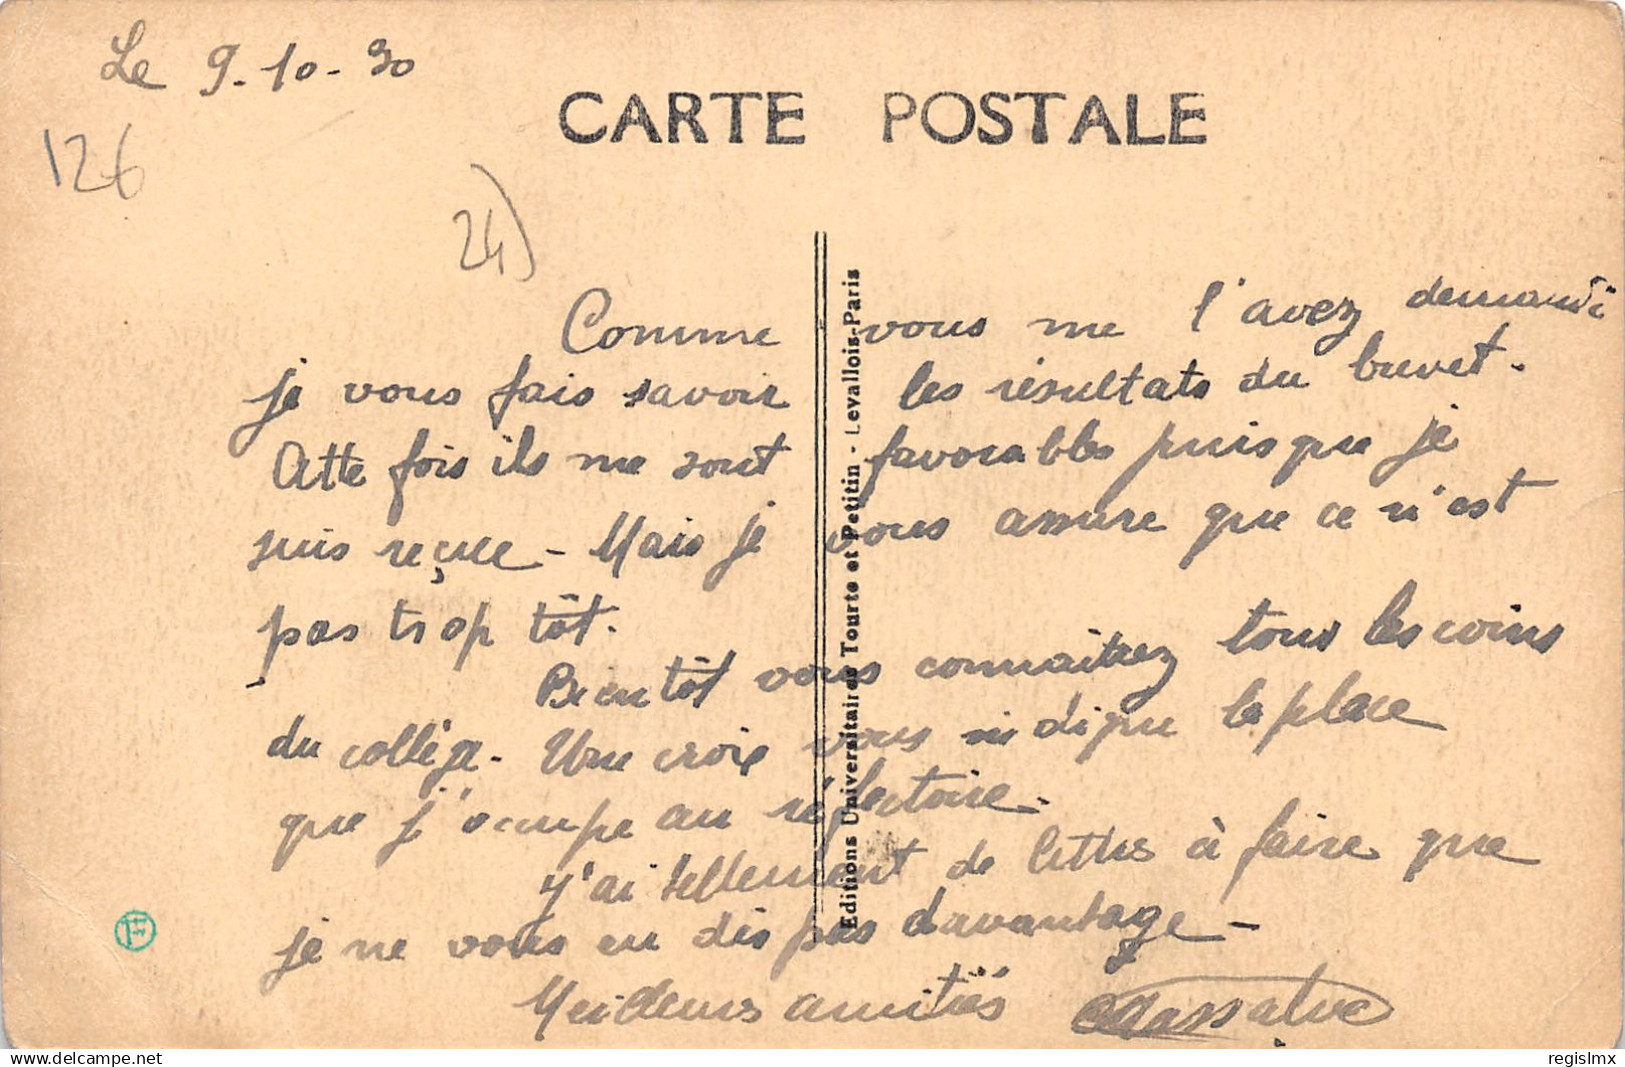 Le 9-10-30
CARTE POSTALE
126
24)
Comme vous me l'avez demandé
je vous fais savoir les résultats du brevet.
Cette fois ils me sont favorables puisque je
suis reçue - Mais je vous assure que ce n'est
pas trop tôt.
Bientôt vous connaitrez tous les coins
du collège. Une croix vous indique la place
que j'occupe au réfectoire.
J'ai tellement de lettres à faire que
je ne vous en dis pas davantage -
Meilleures amitiés
Editions Universitaires Tourte et Petitin - Levallois-Paris
delcampe.net
regislmx